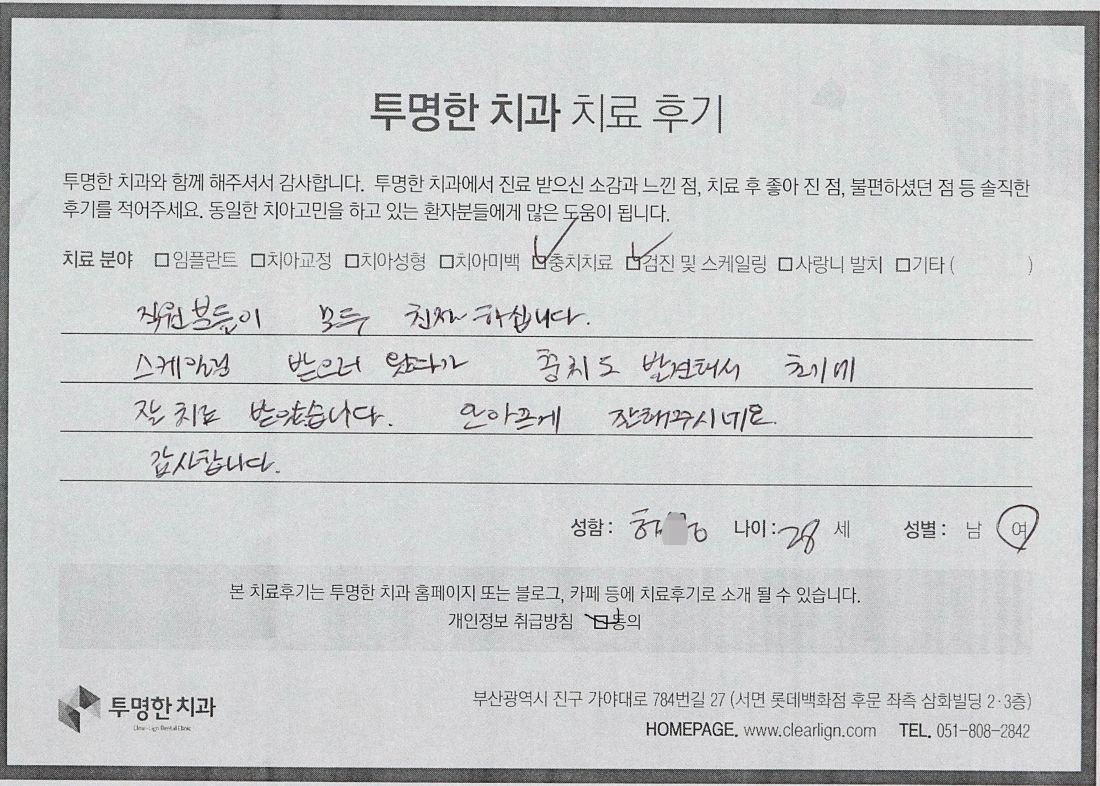 투명한 치과 치료 후기
투명한 치과와 함께 해주셔서 감사합니다. 투명한 치과에서 진료 받으신 소감과 느낀 점, 치료 후 좋아 진 점, 불편하셨던 점 등 솔직한
후기를 적어주세요. 동일한 치아고민을 하고 있는 환자분들에게 많은 도움이 됩니다.
치료 분야 □임플란트 □치아교정 □치아성형 □치아미백 ☑충치치료 ☑검진 및 스케일링 □사랑니 발치 □기타 ( )
직원분들이 모두 친절하십니다.
스케일링 받으러 왔다가 충치도 발견돼서 초기에
잘 치료 받았습니다. 안아프게 잘해주시네요.
감사합니다.
성함 : 나이 : 28 세 성별 : 남 여
본 치료후기는 투명한 치과 홈페이지 또는 블로그, 카페 등에 치료후기로 소개 될 수 있습니다.
개인정보 취급방침 ☑동의
투명한 치과
Clear-Lign Dental Clinic
부산광역시 진구 가야대로 784번길 27 (서면 롯데백화점 후문 좌측 삼화빌딩 2·3층)
HOMEPAGE. www.clearlign.com TEL. 051-808-2842